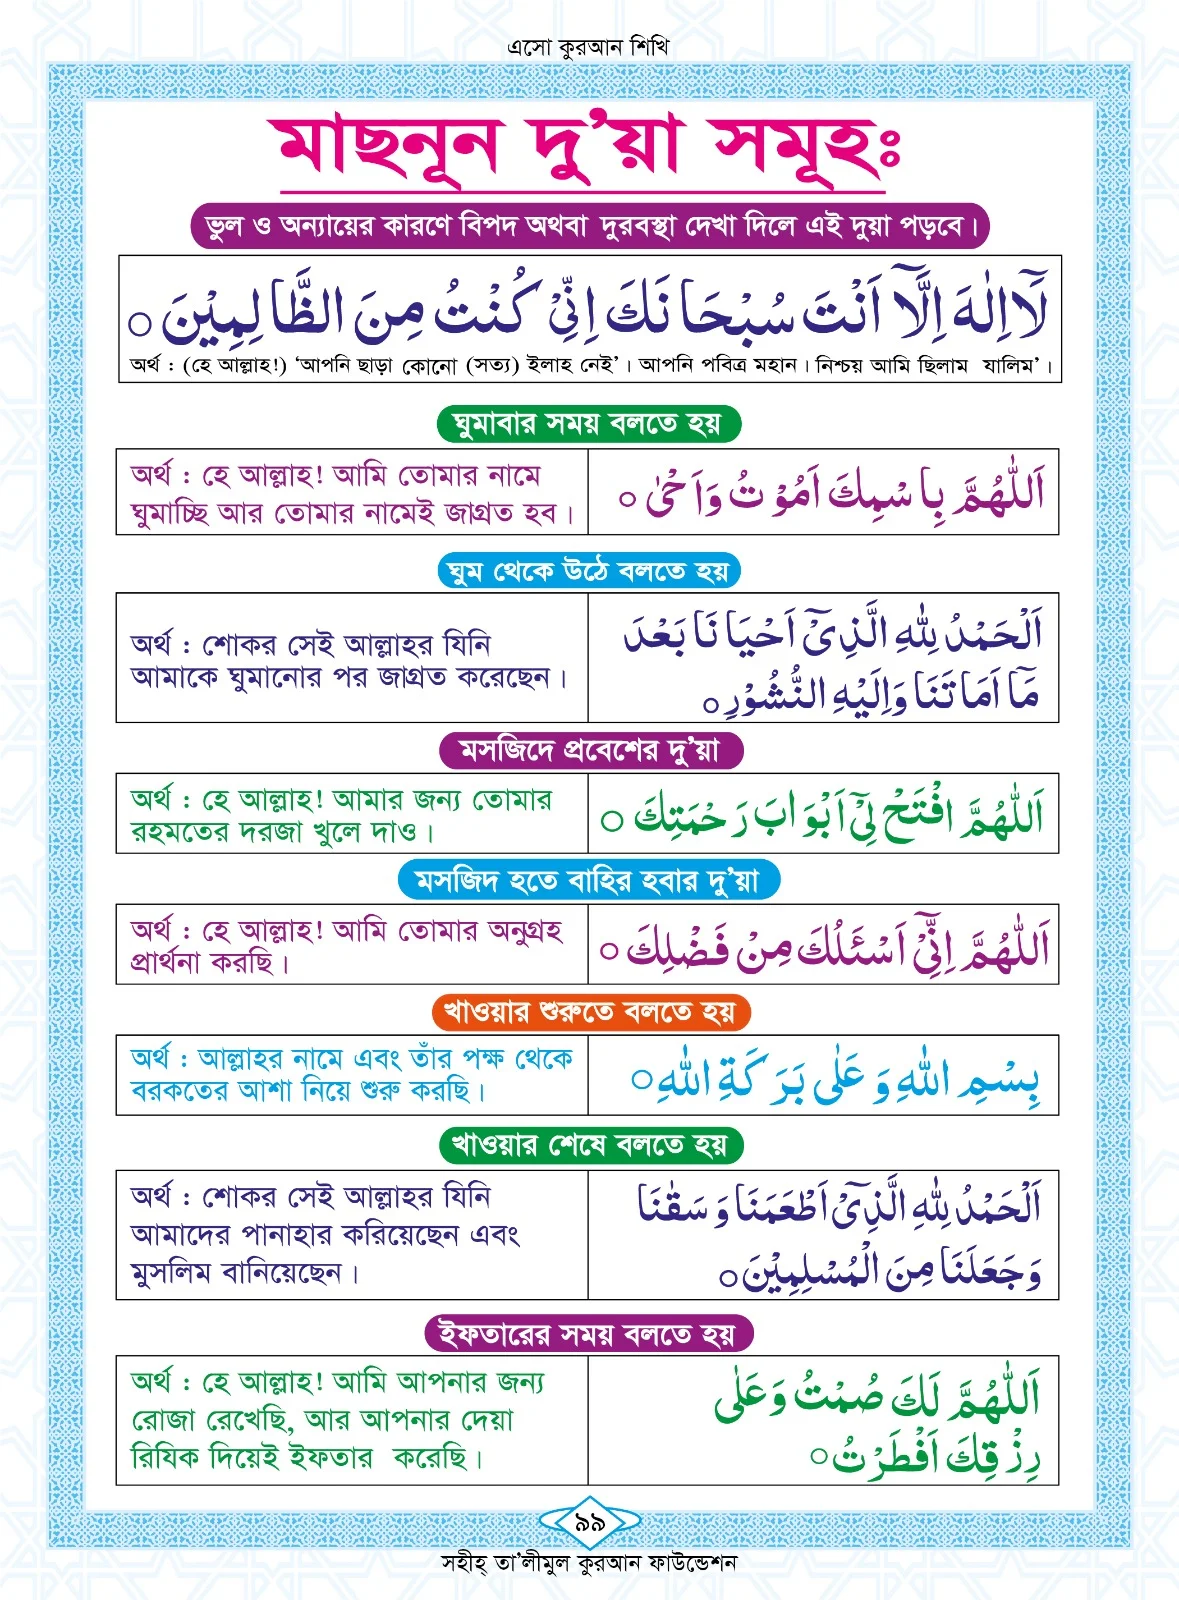 এসো কুরআন শিখি
মাছনূন দু’য়া সমূহঃ
ভুল ও অন্যায়ের কারণে বিপদ অথবা দুরবস্থা দেখা দিলে এই দুয়া পড়বে।
لَاۤ اِلٰهَ اِلَّاۤ اَنْتَ سُبْحَانَكَ اِنِّىْ كُنْتُ مِنَ الظَّالِمِيْنَ ○
অর্থ : (হে আল্লাহ!) ‘আপনি ছাড়া কোনো (সত্য) ইলাহ নেই’। আপনি পবিত্র মহান। নিশ্চয় আমি ছিলাম যালিম’।
ঘুমাবার সময় বলতে হয়
অর্থ : হে আল্লাহ! আমি তোমার নামে
ঘুমাচ্ছি আর তোমার নামেই জাগ্রত হব।
اَللّٰهُمَّ بِاسْمِكَ اَمُوْتُ وَاَحْىٰ ○
ঘুম থেকে উঠে বলতে হয়
অর্থ : শোকর সেই আল্লাহর যিনি
আমাকে ঘুমানোর পর জাগ্রত করেছেন।
اَلْحَمْدُ لِلّٰهِ الَّذِىْۤ اَحْيَانَا بَعْدَ
مَاۤ اَمَاتَنَا وَاِلَيْهِ النُّشُوْرِ ○
মসজিদে প্রবেশের দু’য়া
অর্থ : হে আল্লাহ! আমার জন্য তোমার
রহমতের দরজা খুলে দাও।
اَللّٰهُمَّ افْتَحْ لِىْۤ اَبْوَابَ رَحْمَتِكَ ○
মসজিদ হতে বাহির হবার দু’য়া
অর্থ : হে আল্লাহ! আমি তোমার অনুগ্রহ
প্রার্থনা করছি।
اَللّٰهُمَّ اِنِّىْۤ اَسْئَلُكَ مِنْ فَضْلِكَ ○
খাওয়ার শুরুতে বলতে হয়
অর্থ : আল্লাহর নামে এবং তাঁর পক্ষ থেকে
বরকতের আশা নিয়ে শুরু করছি।
بِسْمِ اللّٰهِ وَ عَلٰى بَرَكَةِ اللّٰهِ ○
খাওয়ার শেষে বলতে হয়
অর্থ : শোকর সেই আল্লাহর যিনি
আমাদের পানাহার করিয়েছেন এবং
মুসলিম বানিয়েছেন।
اَلْحَمْدُ لِلّٰهِ الَّذِىْۤ اَطْعَمَنَا وَ سَقٰنَا
وَجَعَلَنَا مِنَ الْمُسْلِمِيْنَ ○
ইফতারের সময় বলতে হয়
অর্থ : হে আল্লাহ! আমি আপনার জন্য
রোজা রেখেছি, আর আপনার দেয়া
রিযিক দিয়েই ইফতার করেছি।
اَللّٰهُمَّ لَكَ صُمْتُ وَعَلٰى
رِزْقِكَ اَفْطَرْتُ ○
৯৯
সহীহ্ তা’লীমুল কুরআন ফাউন্ডেশন